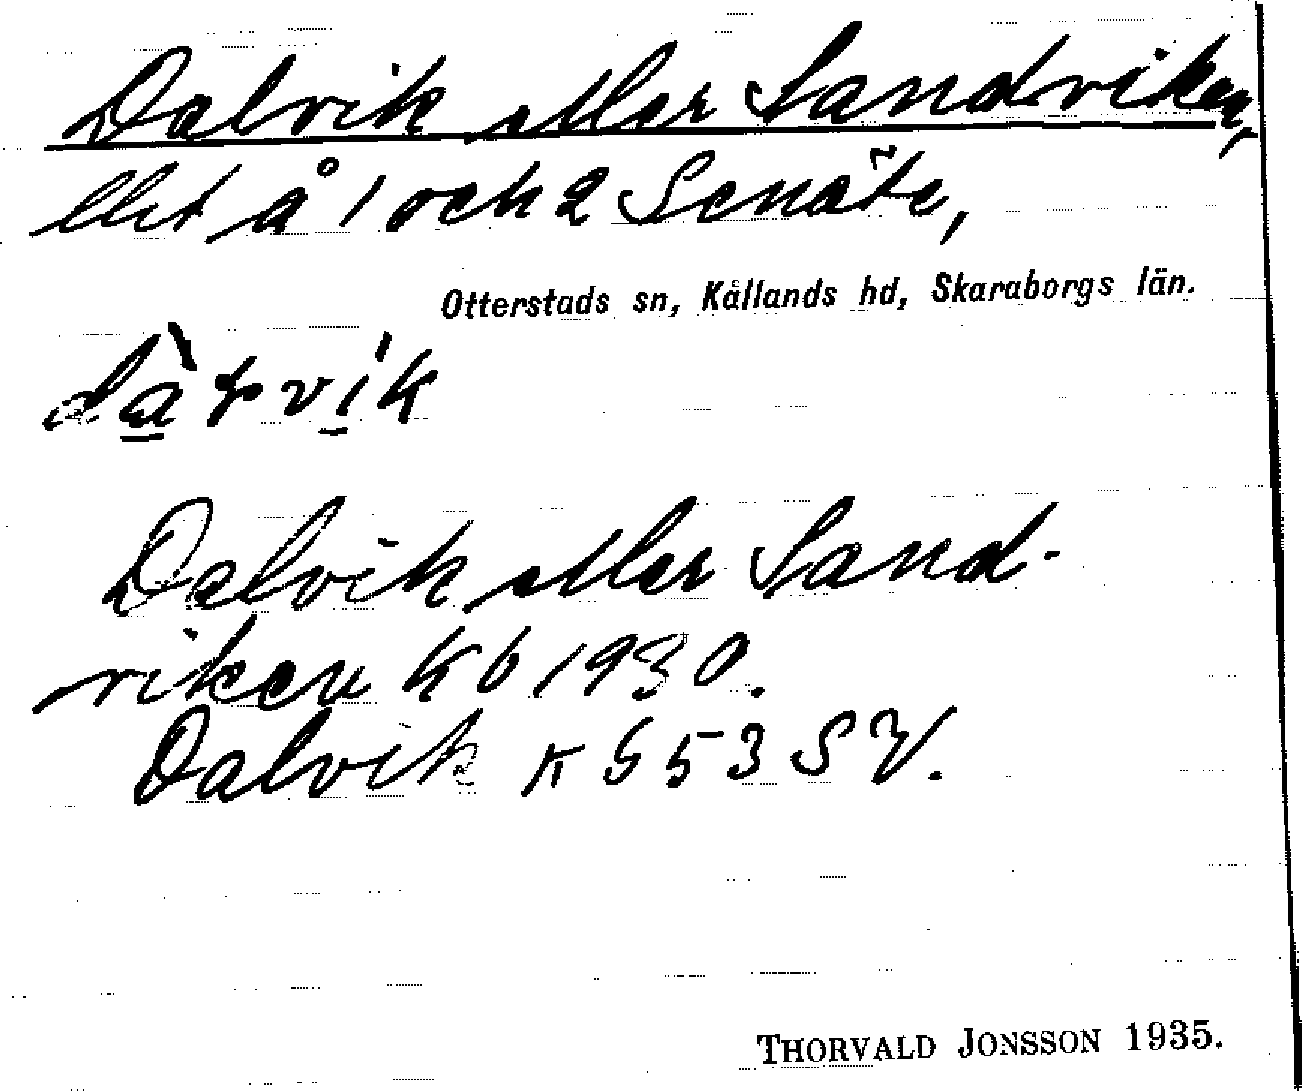 Dalvik eller Sandviken,
lht å 1 och 2 Senäte,
Otterstads sn, Kållands hd, Skaraborgs län.
Dalvik eller Sand-
viken Kb 1930.
Dalvik K G 53 SV.
THORVALD JONSSON 1935.